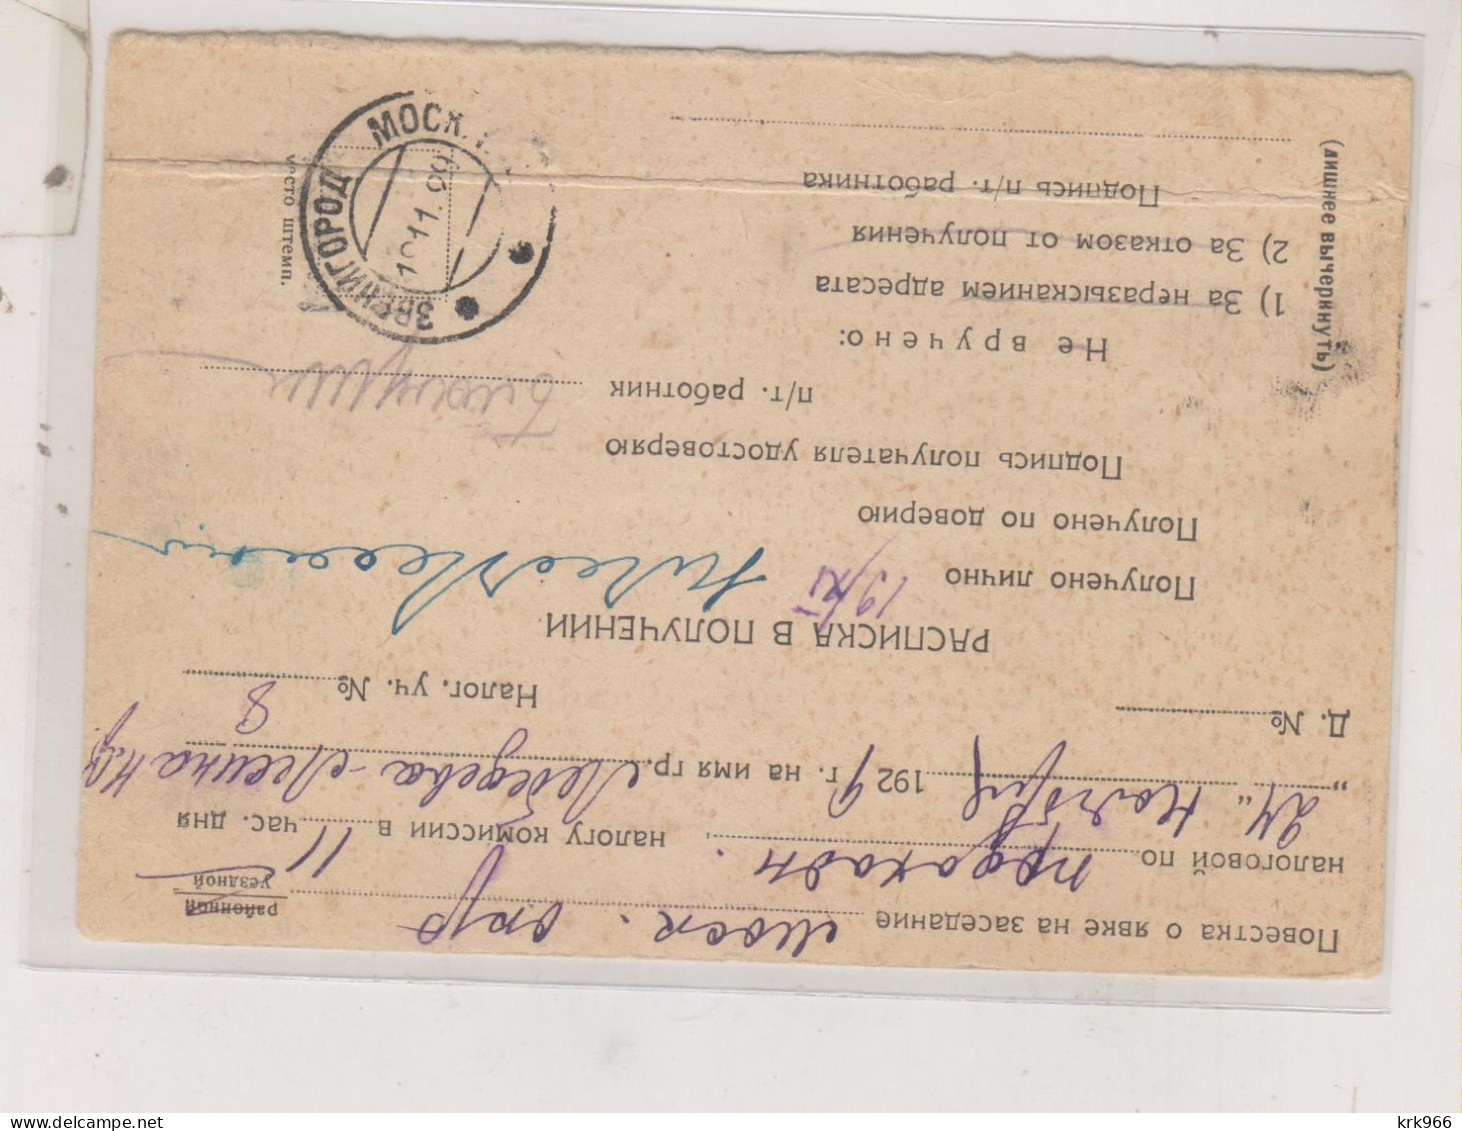 Повестка о явке на заседание Моск. окр
районной
уездной
налоговой по подоходн. налогу комиссии в 11 час. дня
„24" ноября 1929 г. на имя гр.
Д. № Налог. уч. № 8
РАСПИСКА В ПОЛУЧЕНИИ
Получено лично 19/XI
Получено по доверию
Подпись получателя удостоверяю
п/т. работник
Не вручено:
1) За неразысканием адресата
2) За отказом от получения
Подпись п/т. работника
(лишнее вычеркнуть)
место штемп.
ЗВЕНИГОРОД МОСК.
krk966